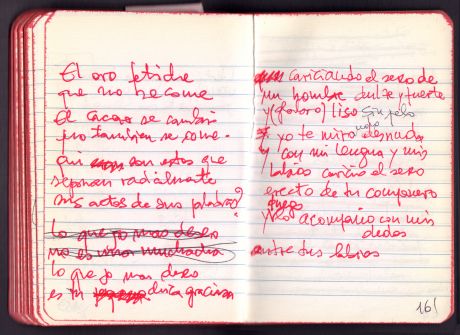 El oro fetiche
que no se come
El cacao se cambia
pero tambien se come.
Quien son estos que
separan radialmente
sus actos de sus palabras?
lo que yo mas deseo
no es una muchacha
lo que yo mas deseo
es tu dulce gracia
cariciando el sexo de
un hombre dulce y fuerte
y (gloloro) liso sin pelo
yo te miro desnuda
y con mi lengua y mis
labios caricio el sexo
erecto de tu companero
luego
y lo acompaño con mis
dedos
entre tus labios
161